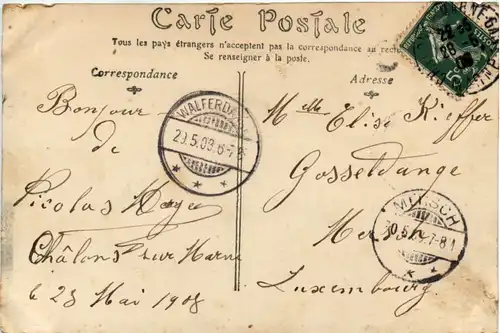 Carte Postale
Tous les pays étrangers n'acceptent pas la correspondance au recto
Se renseigner à la poste.
Correspondance
Adresse
Bonjour
de
Nicolas
Châlons sur Marne
le 28 Mai 1908
WALFERDANGE
29.5.08.6-7
Melle Elise Kieffer
Gosseldange
Mersch
Luxembourg
MERSCH
30.5.08.7-8